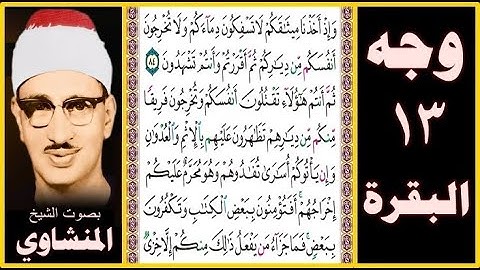 وجه
١٣
البقرة
وَإِذْ أَخَذْنَا مِيثَٰقَكُمْ لَا تَسْفِكُونَ دِمَآءَكُمْ وَلَا تُخْرِجُونَ
أَنفُسَكُم مِّن دِيَٰرِكُمْ ثُمَّ أَقْرَرْتُمْ وَأَنتُمْ تَشْهَدُونَ ٨٤
ثُمَّ أَنتُمْ هَٰٓؤُلَآءِ تَقْتُلُونَ أَنفُسَكُمْ وَتُخْرِجُونَ فَرِيقًا
مِّنكُم مِّن دِيَٰرِهِمْ تَظَٰهَرُونَ عَلَيْهِم بِٱلْإِثْمِ وَٱلْعُدْوَٰنِ
وَإِن يَأْتُوكُمْ أُسَٰرَىٰ تُفَٰدُوهُمْ وَهُوَ مُحَرَّمٌ عَلَيْكُمْ
إِخْرَاجُهُمْ ۚ أَفَتُؤْمِنُونَ بِبَعْضِ ٱلْكِتَٰبِ وَتَكْفُرُونَ
بِبَعْضٍ ۚ فَمَا جَزَآءُ مَن يَفْعَلُ ذَٰلِكَ مِنكُمْ إِلَّا خِزْىٌ
بصوت الشيخ
المنشاوي